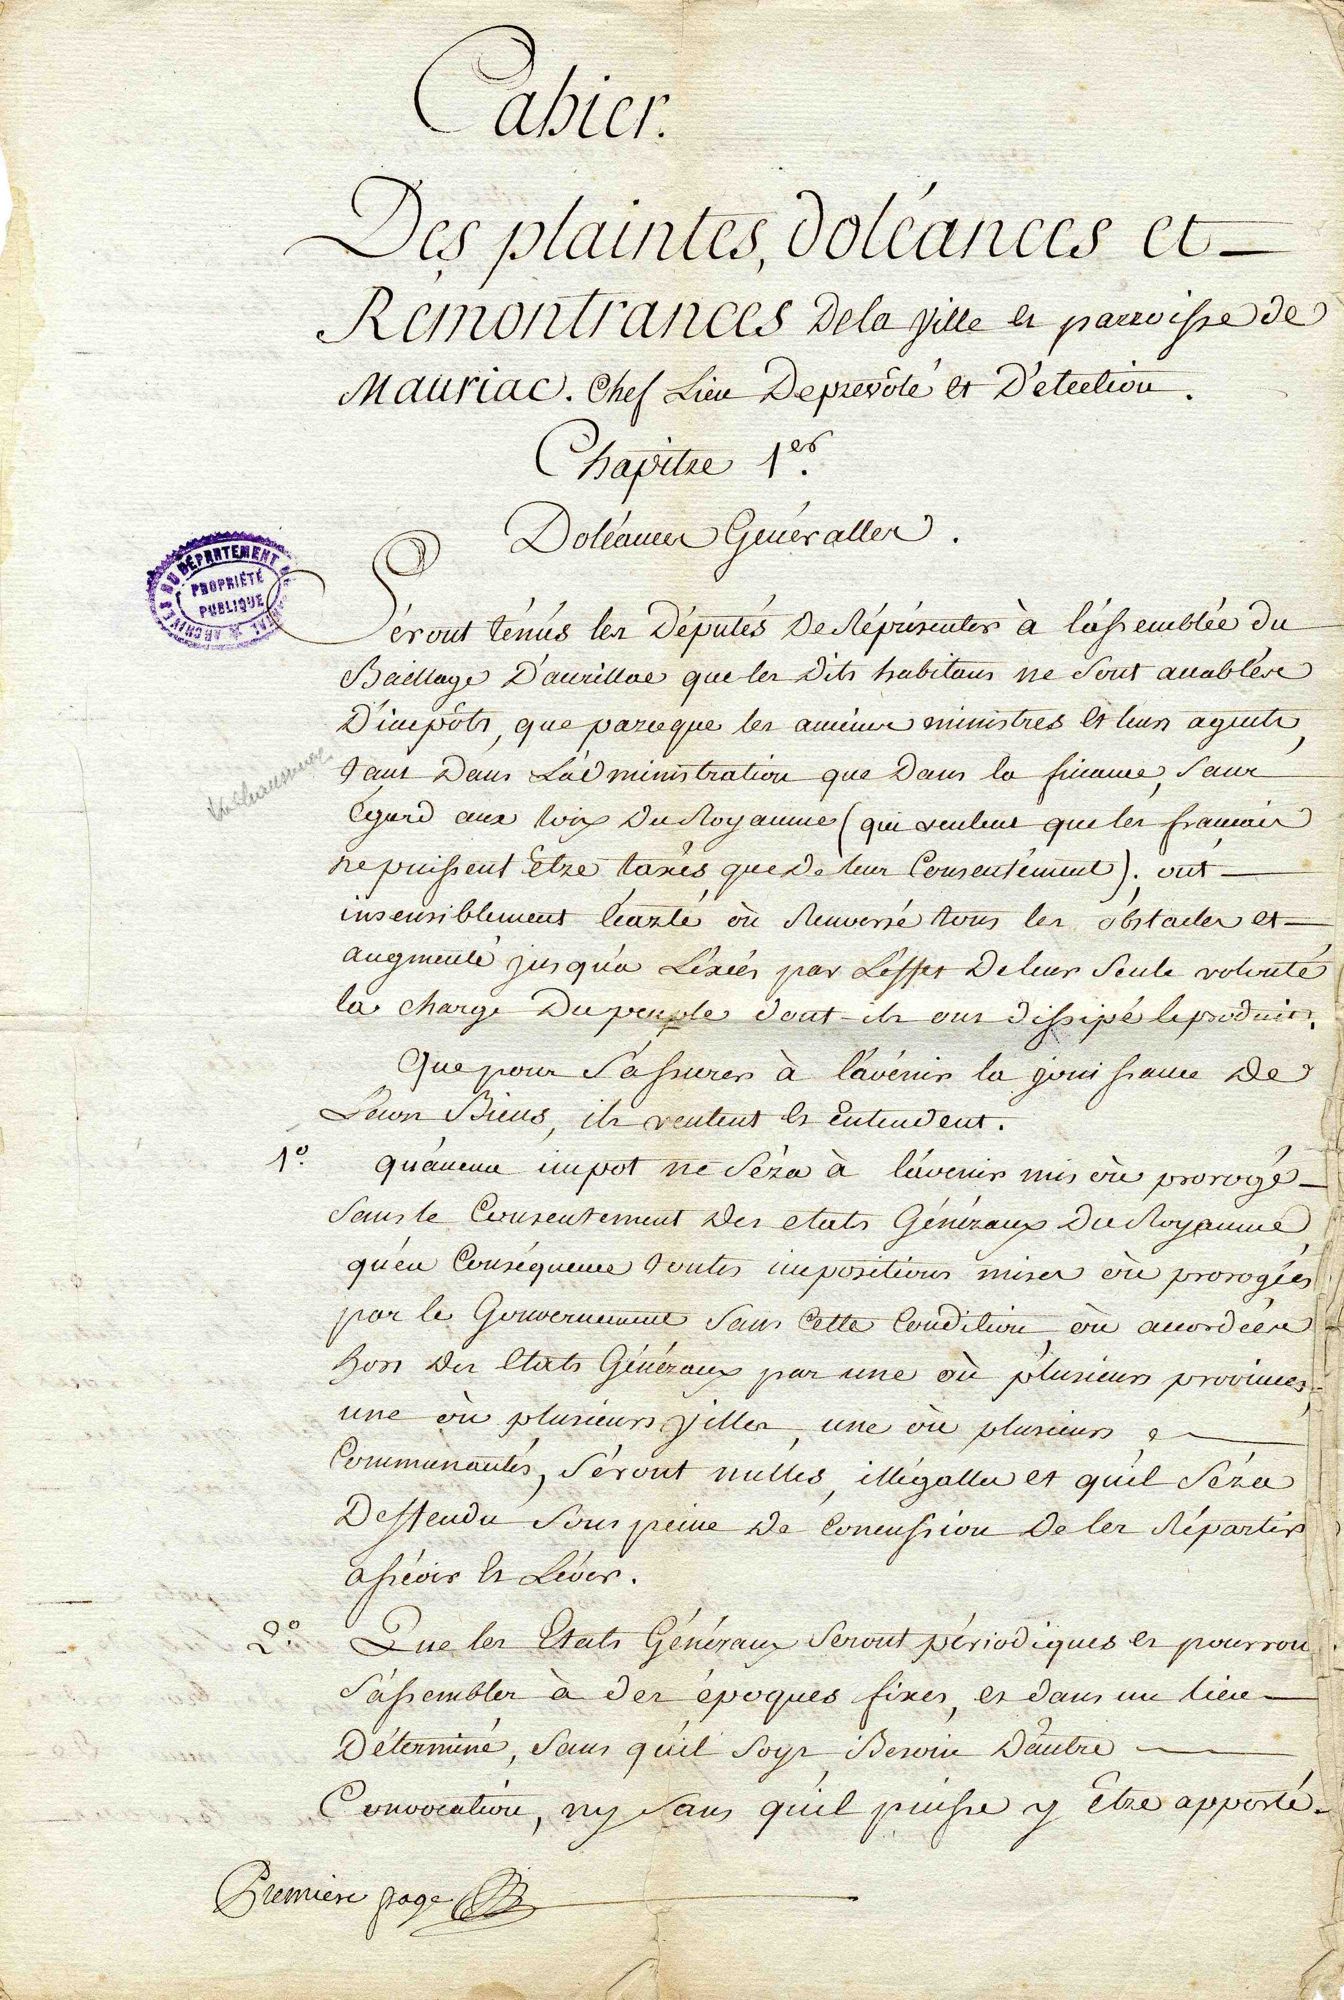 Cahier.
Des plaintes, doléances et
Rémontrances de la ville et parroisse de
Mauriac. Chef Lieu De prevôté et D'éléction.
Chapitre 1er.
Doléances Généralles.
Séront ténús les Députés De Répresenter à l'assemblée du
Bailliage D'aurillac que les Dits habitans ne Sont accablés
D'impôts, que parceque les anciens ministres et leurs agents,
tant Dans L'administration que Dans la finance, Sans
Egard aux loix Du Royaume (qui veulent que les francais
ne puissent Etre taxés que De leur Consentément). ont
insensiblement écarté où Renversé tous les obstacles et
augmenté jusqu'a L'éxcés par L'effet De leur Seule volonté
la charge Du peuple dont ils ont dissipé le produit.
Que pour S'assurer à l'avénir la jouissance De
Leurs Biens, ils veulent et Entendent.
1o. qu'aucun impot ne Séra à l'avenir mis où prorogé
Sans le Consentement Des etats Généraux Du Royaume
qu'en Conséquence toutes impositions mises où prorogées
par le Gouvernement Sans Cette Condition, où accordées
hors Des Etats Généraux par une où plusieurs provinces,
une où plusieurs villes, une où plusieurs
Communautés, Séront nulles, illégalles et qu'il Séra
Deffendu Sous peine De Concussion De les Répartir
asséoir et Léver.
2o. Que les Etats Généraux Seront périodiques et pourron
S'assembler à des époques fixes, et dans un lieu
Déterminé, Sans qu'il Soyt Besoin D'autre
Convocation, ny Sans qu'il puisse y Etre apporté
Premiere page
ARCHIVES DU DÉPARTEMENT
PROPRIÉTÉ
PUBLIQUE